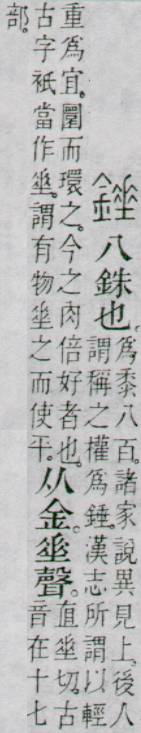 錘
八銖也。
爲黍八百。諸家說異見上。後人
謂稱之權爲錘。漢志所謂以輕
重爲宜。圜而環之。今之肉倍好者也。
古字衹當作𠂹。謂有物𠂹之而使平。
从金。𠂹聲。
直𠂹切。古
音在十七
部。